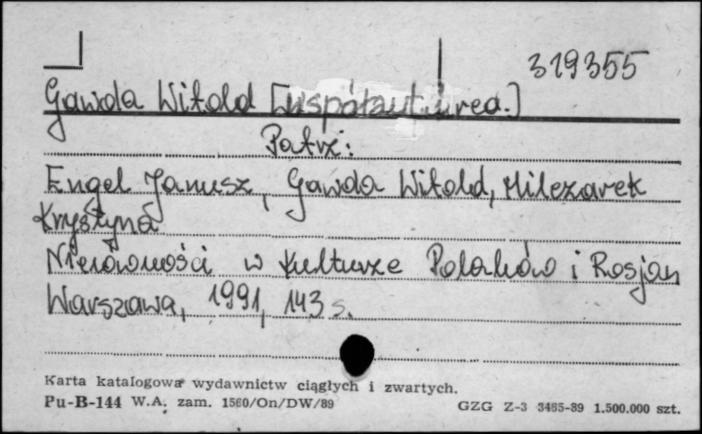 319355
Gawda Witold [współaut. i red.]
Patrz:
Engel Janusz, Gawda Witold, Milczarek
Krystyna
Nierówności w kulturze Polaków i Rosjan
Warszawa, 1991, 143 s.
Karta katalogowa wydawnictw ciągłych i zwartych.
Pu-B-144 W.A. zam. 1560/On/DW/89 GZG Z-3 3465-89 1.500.000 szt.